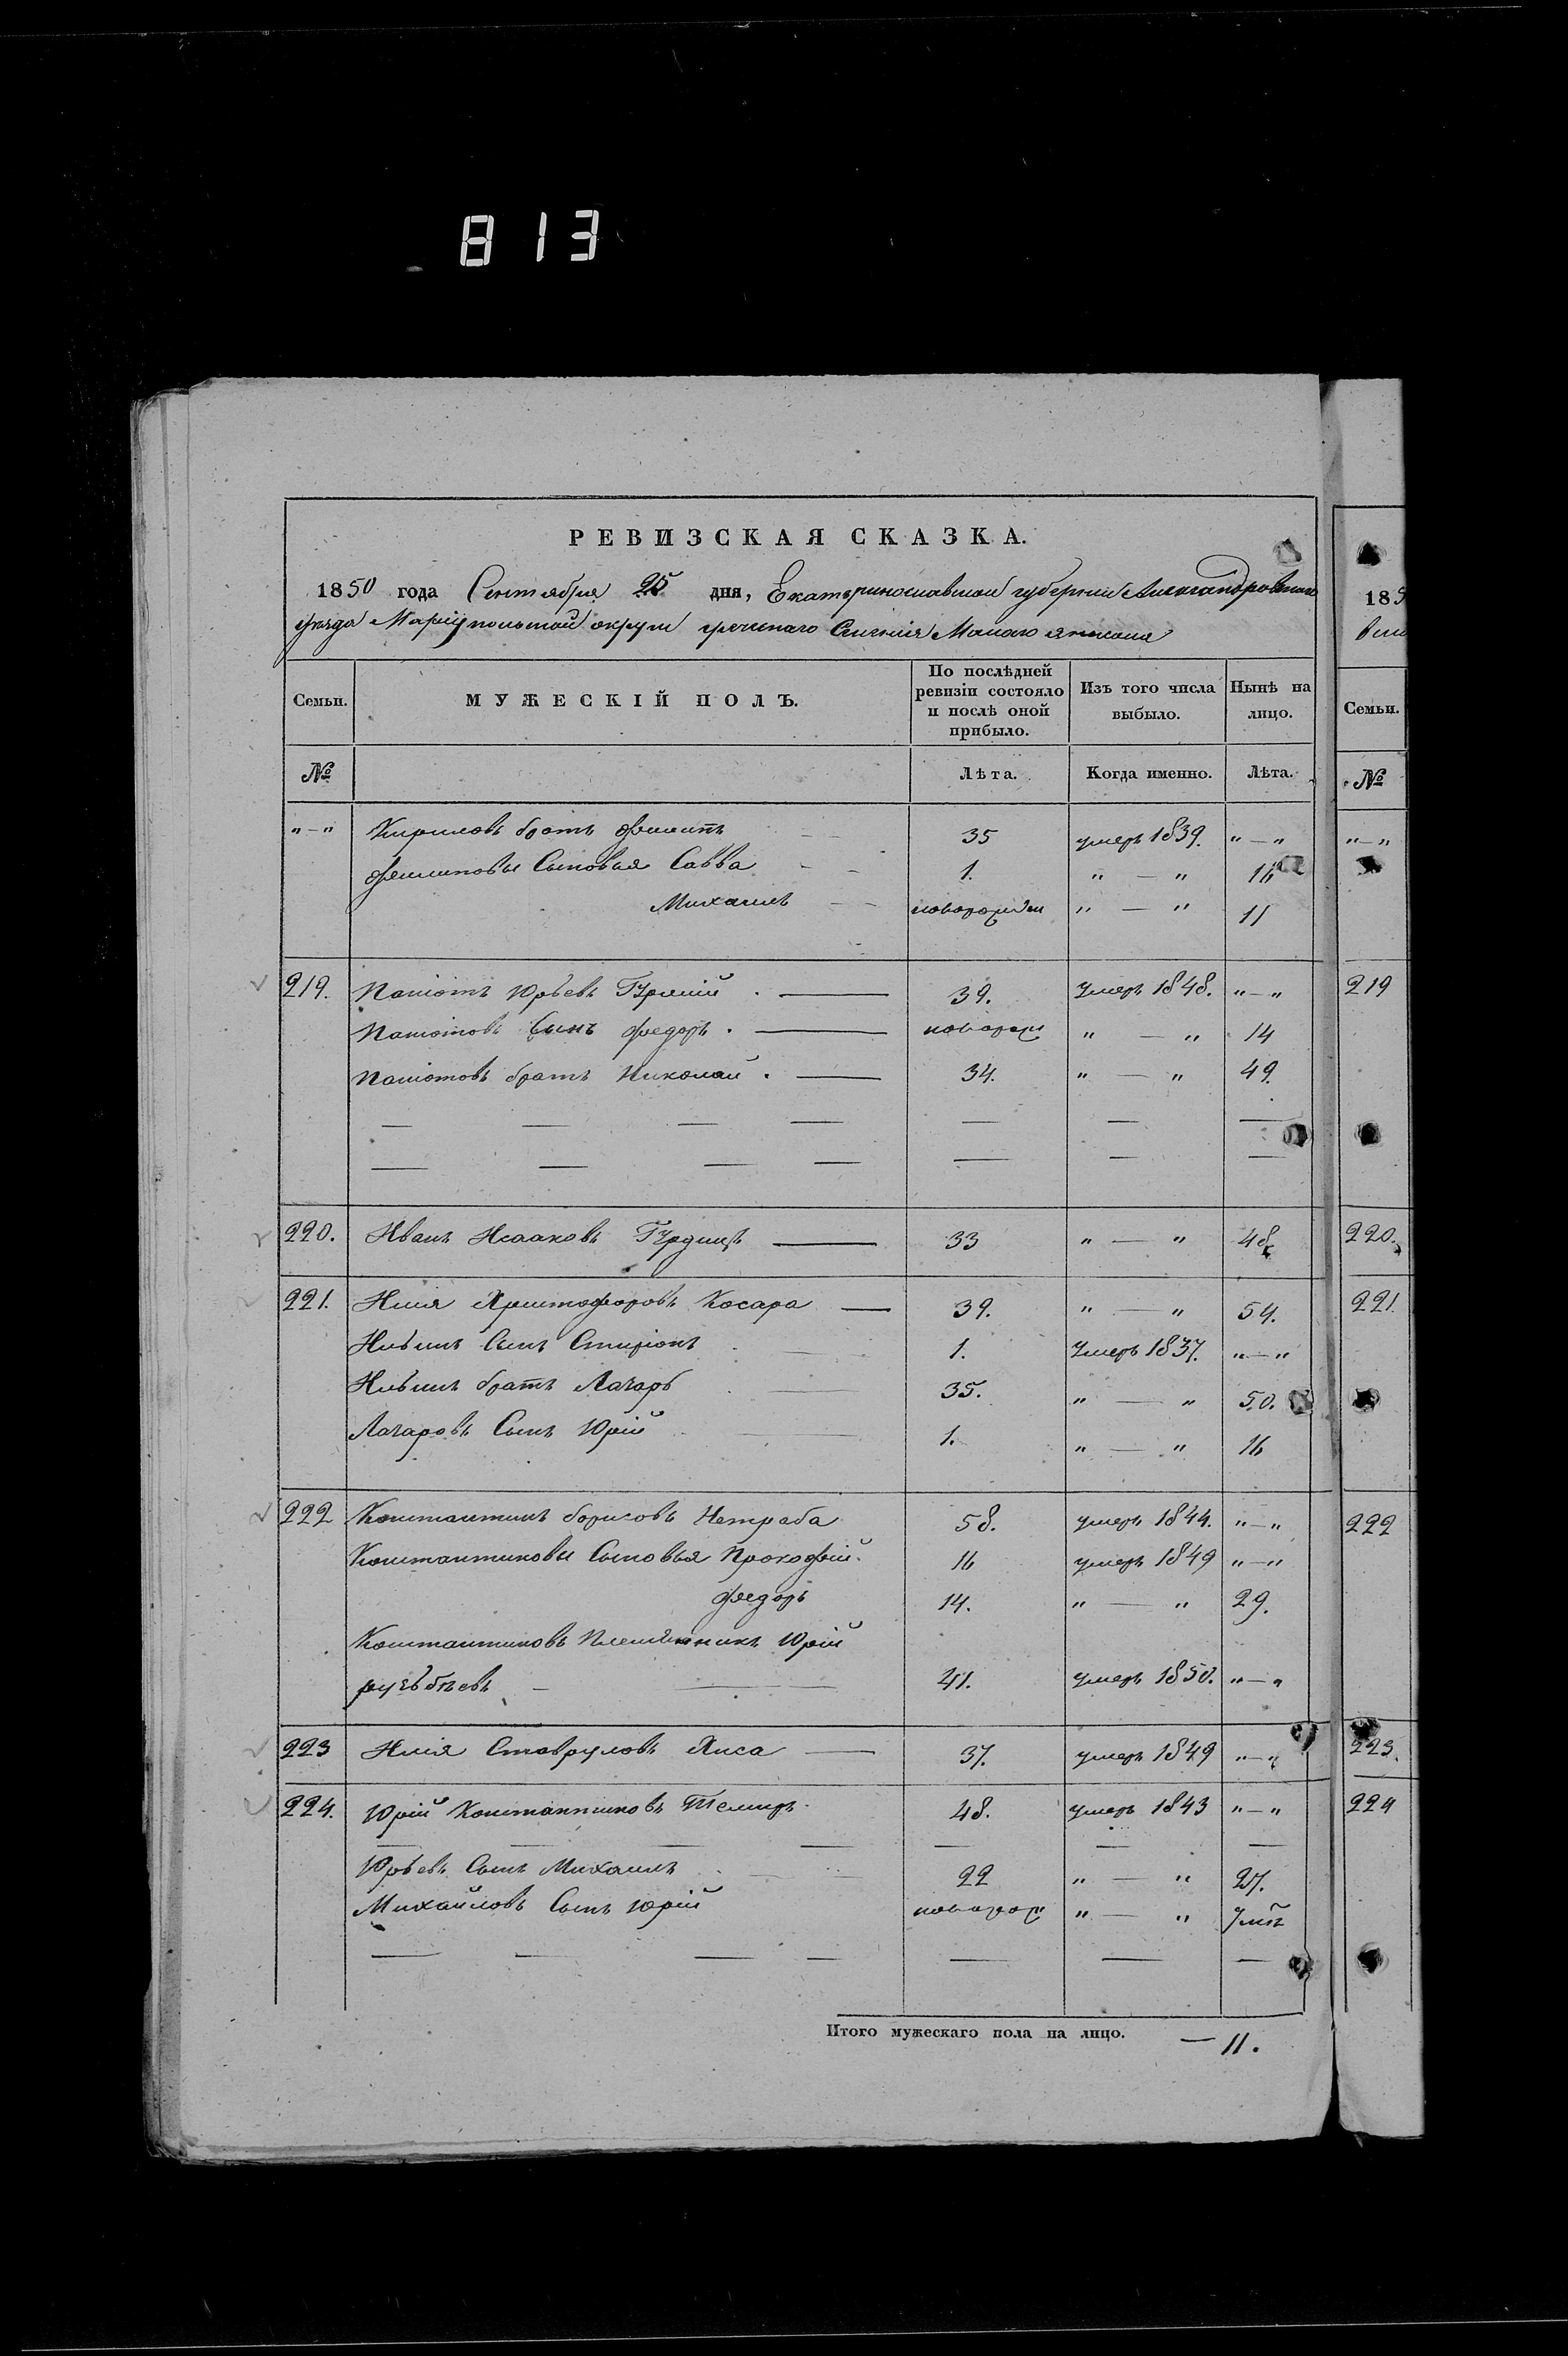 813
РЕВИЗСКАЯ СКАЗКА.
1850 года Сентября 25 дня, Екатеринославской губернии Александровскаго
уѣзда Маріупольской округи греческаго Селенія Малаго Янисоля
Семьи. МУЖЕСКІЙ ПОЛЪ. По послѣдней ревизіи состояло и послѣ оной прибыло. Изъ того числа выбыло. Нынѣ на лицо. Семьи.
№ Лѣта. Когда именно. Лѣта. №
"—" Кириловъ братъ Филипъ 35 умеръ 1839. "—" "—"
Филиповы Сыновья Савва 1. " — " 16
Михаилъ новорожден " — " 11
219. Паніотъ Юрьевъ 39. Умеръ 1848. "—" 219
Паніотовъ Сынъ Федоръ. новорож " — " 14
Паніотовъ братъ Николай. 34. " — " 49.
220. Иванъ Исааковъ 33 " — " 48 220.
221. Илія Христофоровъ Косара 39. " — " 54. 221
Ильинъ Сынъ Спиріонъ 1. Умеръ 1837. "—"
Ильинъ братъ Лазарь 35. " — " 50.
Лазаровъ Сынъ Юрій 1. " — " 16
222 Константинъ Борисовъ Нетраба 58. умеръ 1844. "—" 222
Константиновы Сыновья Прокофій. 16 умеръ 1849 "—"
Федоръ 14. " — " 29.
Константиновъ Племянникъ Юрій
41. умеръ 1850. "—"
223 Илія Ставруловъ Яиса 37. умеръ 1849 "—" 223.
224. Юрій Константиновъ Темиръ 48. умеръ 1843 "—" 224
Юрьевъ Сынъ Михаилъ 22 " — " 27.
Михайловъ Сынъ Юрій новорож " — "
Итого мужескаго пола на лицо. — 11.